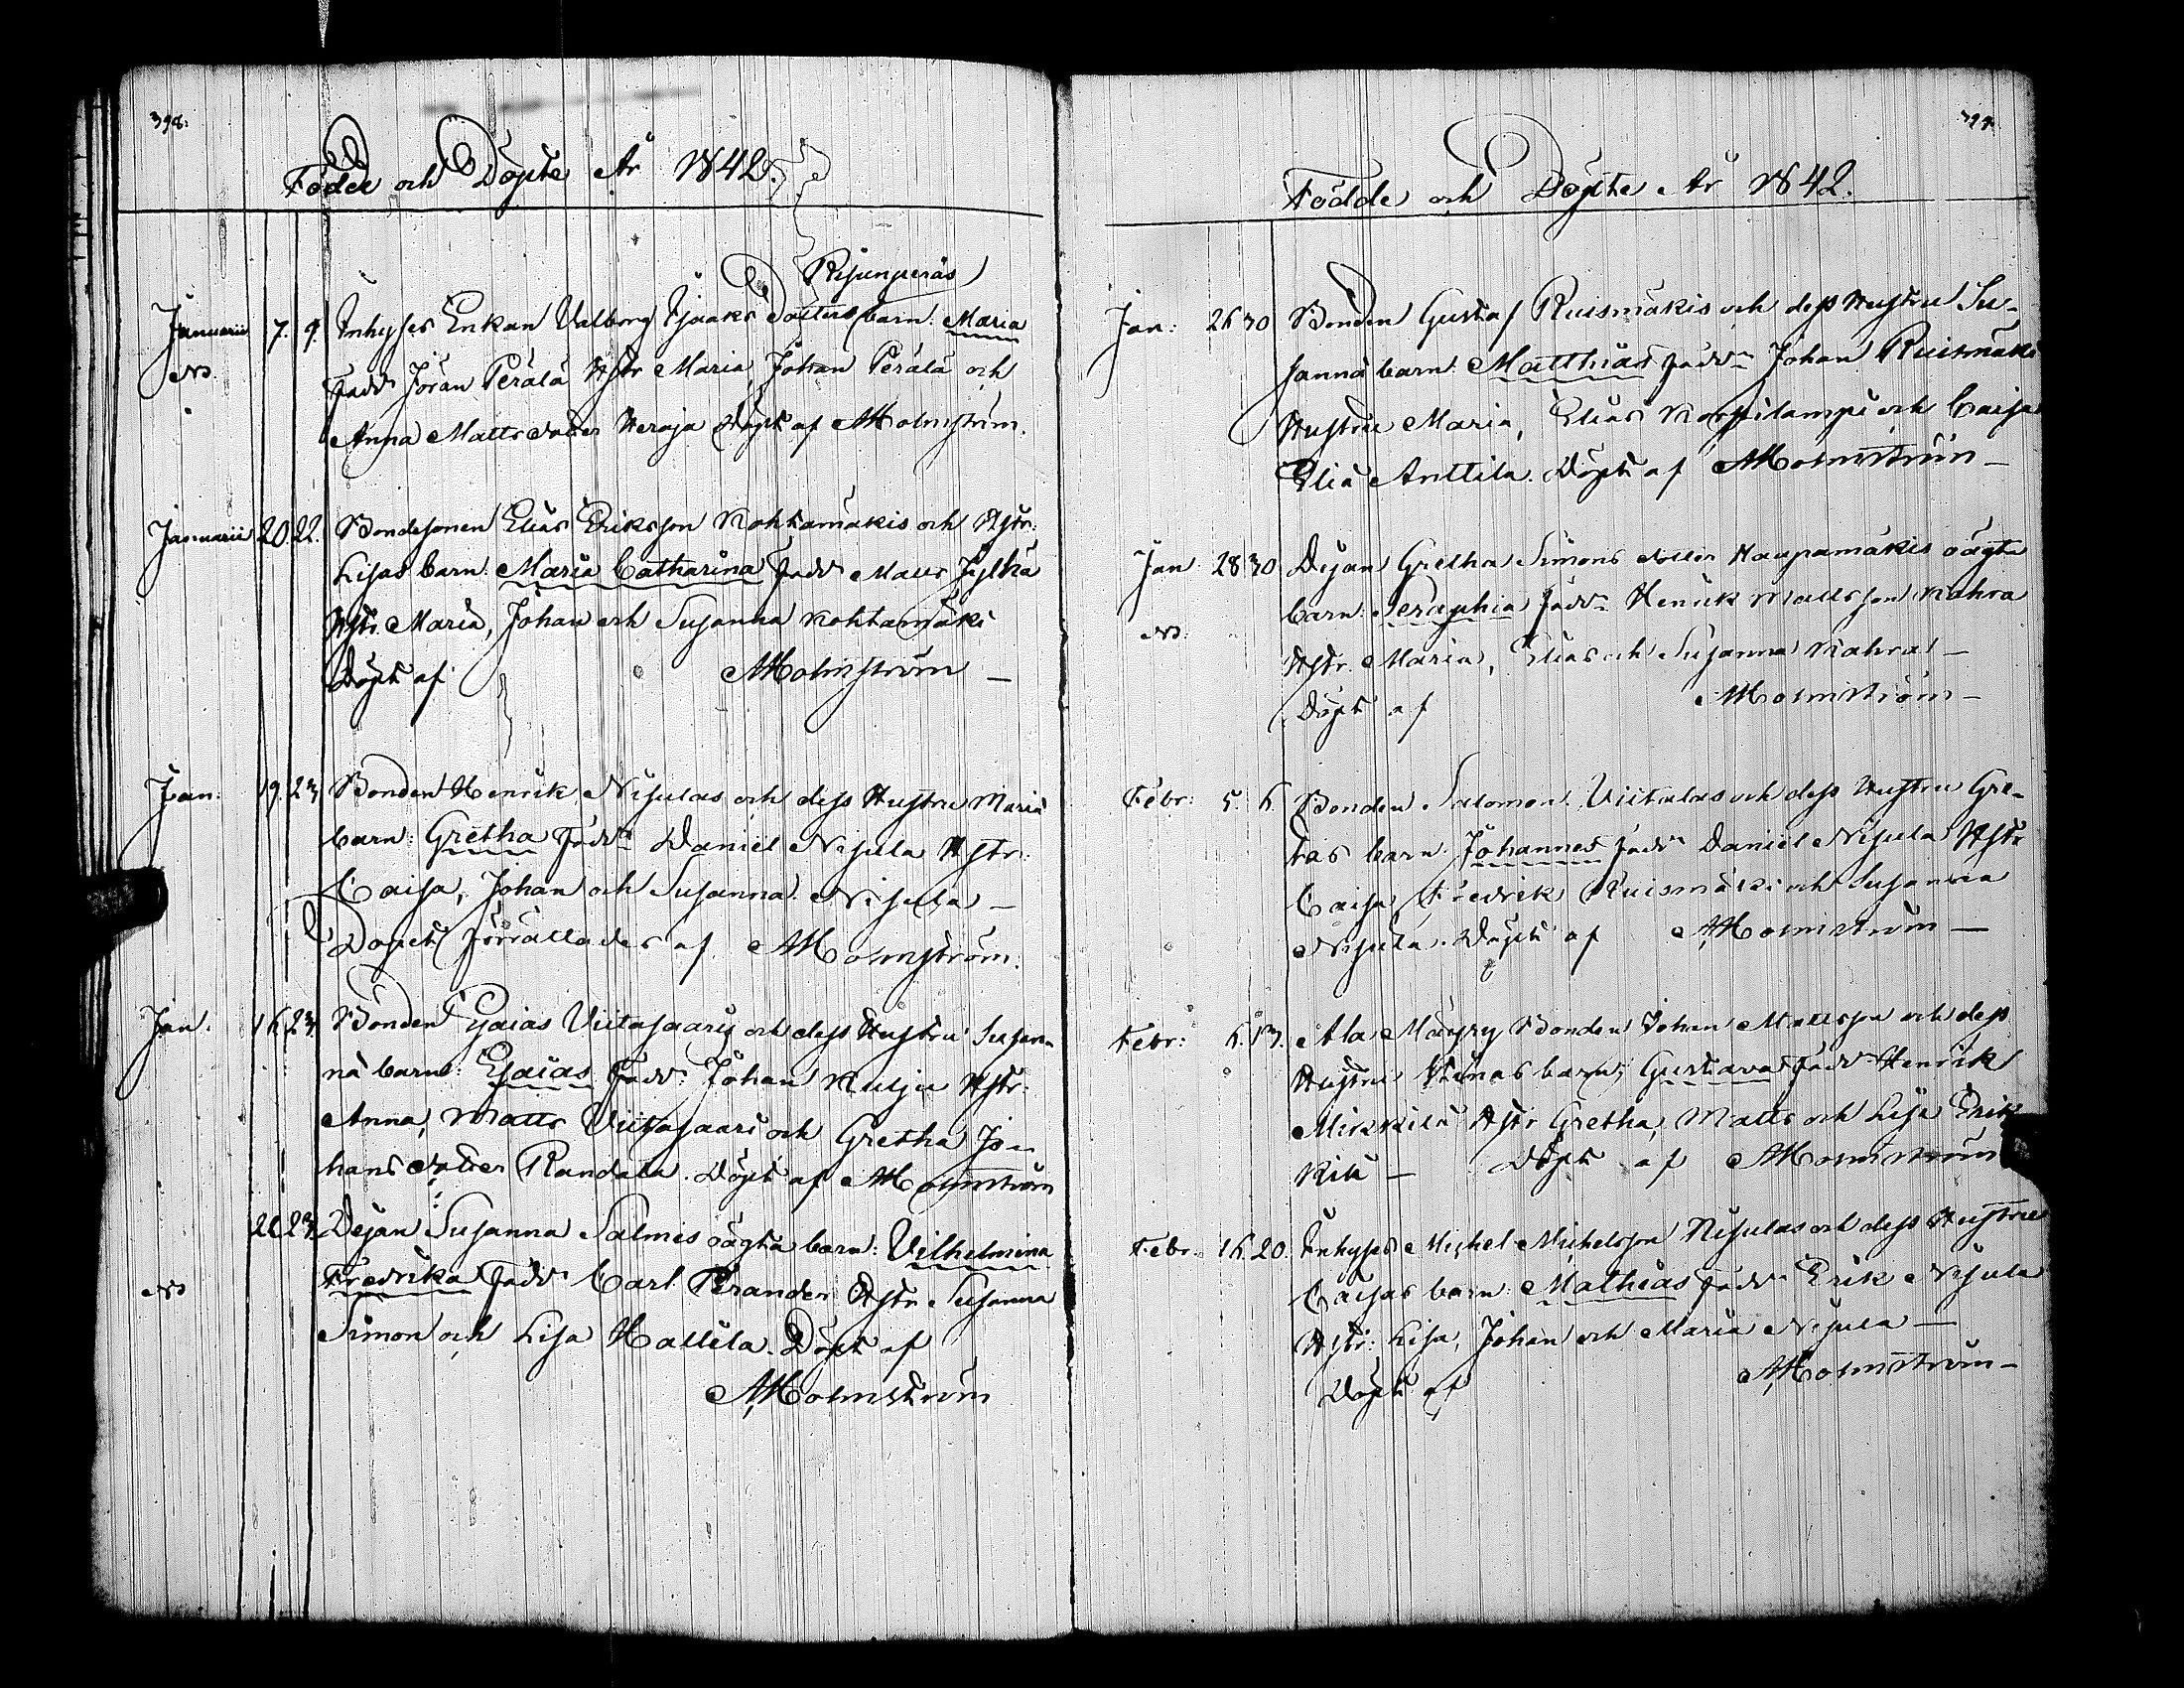 398.
Födde och Döpte År 1842.
Ripinperäs
Januarii 7. 9. Inhyses Enkan Valborg Isaaks Dotters barn: Maria
No. Fadd: Jöran Perälä Hstr Maria, Johan Perälä och
Anna Matts dotter Heroja Döpt af AHolmström.
Januarii 20. 22. Bondesonen Elias Eriksson Kohtamäkis och Hstr:
Lisas barn: Maria Catharina Fadd: Matts Jylhä
Hstr. Maria, Johan och Susanna Kohtamäki
Döpt af AHolmström —
Jan: 19. 23. Bonden Henrik Nisulas och dess Hustru Mariä
barn: Gretha Fadd: Daniel Nisula Hstr:
Caisa, Johan och Susanna Nisula —
Dopet förrättades af AHolmström.
Jan. 16. 23. Bonden Esaias Viitasaaris och dess Hustru Susan-
na barn: Esaias Fadd: Johan Kulju Hstr:
Anna, Matts Viitasaari och Gretha Jo-
hans dotter Randala. Döpt af AHolmström
22. 23. Dejan Susanna Salmis oägta barn: Vilhelmina
No Fredrika Fadd: Carl Perander Hstr Susanna
Simon och Lisa Hallila. Döpt af
AHolmström
399.
Födde och Döpte År 1842.
Jan: 26 30 Bonden Gustaf Ruismäkis och dess Hustru Su-
sanna barn: Matthias Fadd: Johan Ruismäki
Hustru Maria, Elias Korpilampi och Caisa
Elia Anttila. Döpt af AHolmström —
Jan 28 30 Dejan Gretha Simons dotter Haupamäkis oägta
barn: Seraphia Fadd: Henrik Mattsson Kahra
No. Hstr. Maria, Elias och Susanna Kahra —
Döpt af AHolmström —
Febr: 5. 6. Bonden Salomon Viitalas och dess Hustru Gre-
tas barn: Johannes Fadd: Daniel Nisula Hstr
Caisa, Fredrik Ruismäki och Susanna
Nisula. Döpt af AHolmström —
Febr: 6. 13. Ala Mäyry Bonden Johan Mattsson och dess
Hustru Stinas barn; Gustava Fadd: Henrik
Mikkilä Hstr Gretha, Matts och Lisa Erik
kilä — Döpt af AHolmström
Febr. 16. 20. Inhyses Michel Michelsson Nisulas och dess Hustru
Caisas barn: Mathias Fadd: Erik Nisula
Hstr: Lisa, Johan och Maria Nisula —
Döpt af AHolmström —